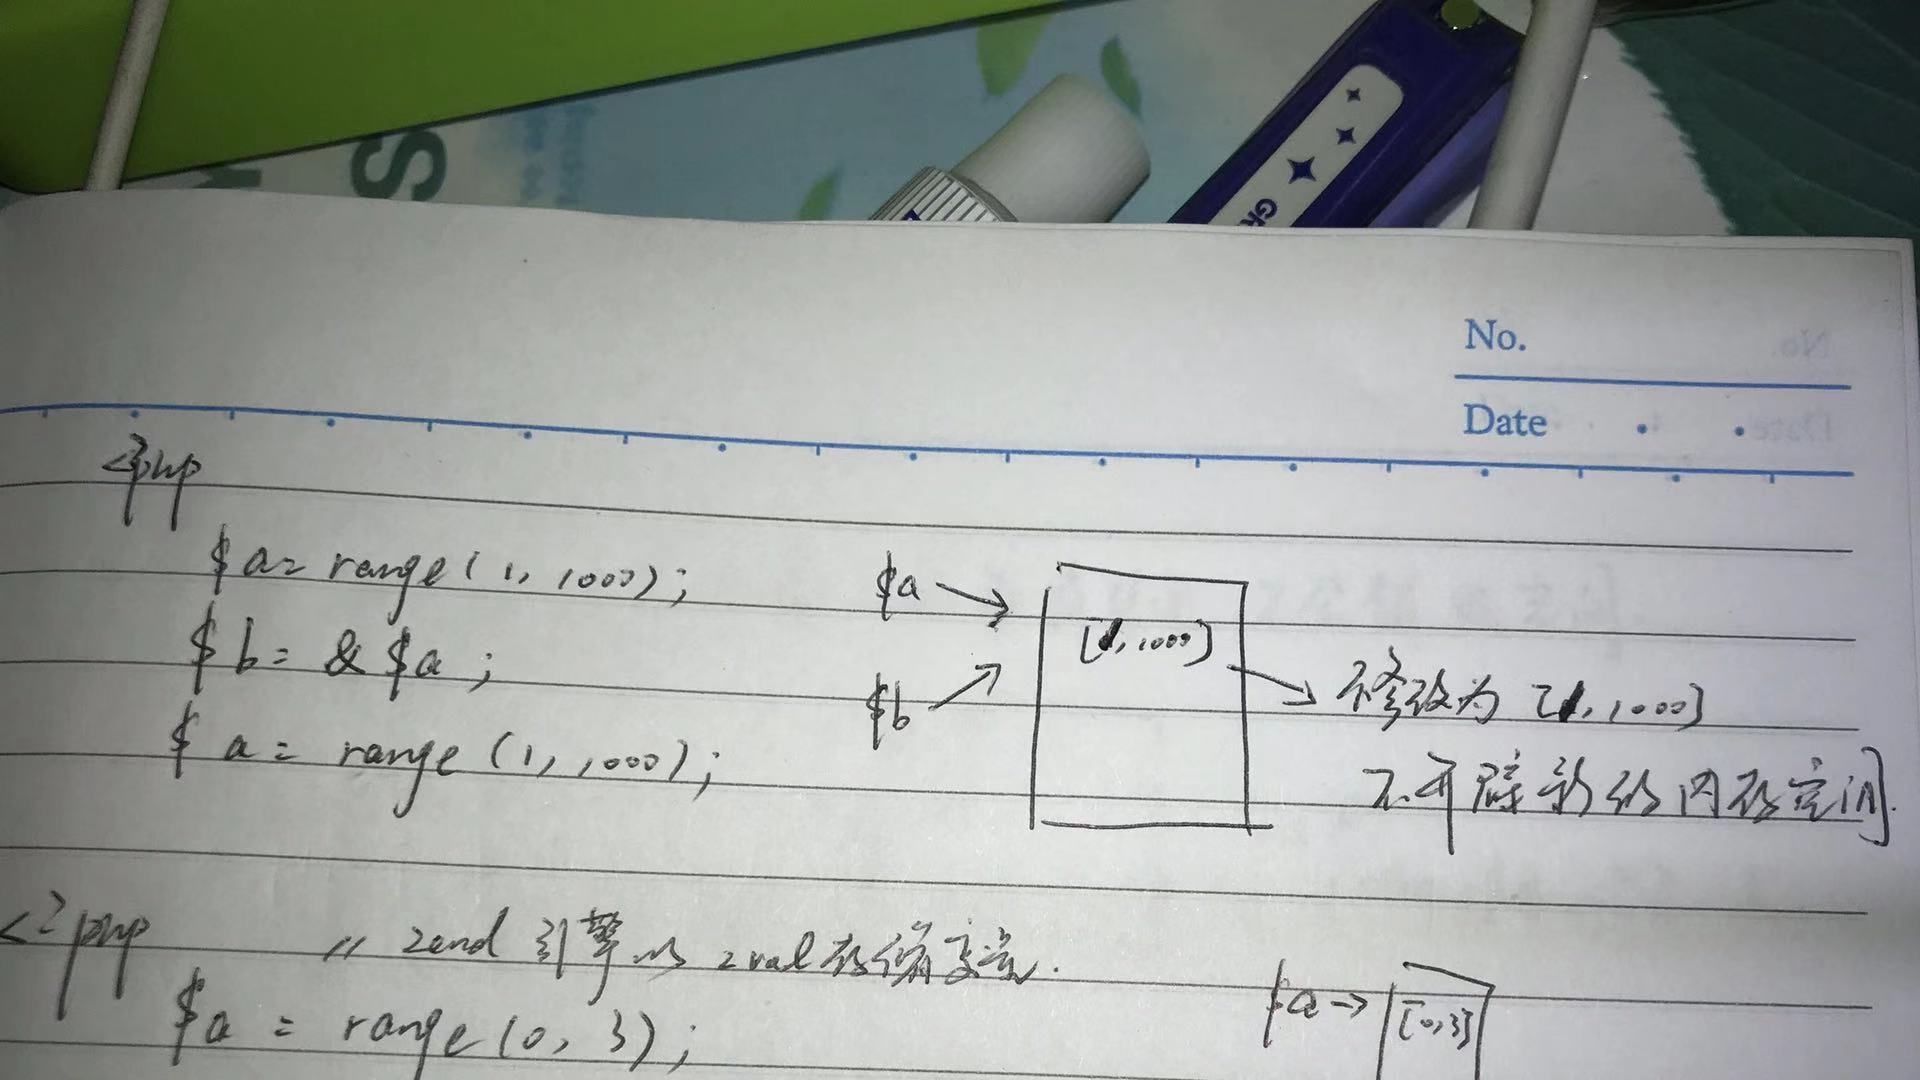 S
GR
No.
Date
<?php
$a= range(1, 1000);
$b= &$a;
$a= range(1, 1000);
$a
$b
[1, 1000]
修改为 [1, 1000]
不开辟新的内存空间.
<?php
// zend 引擎以 zval 存储变量.
$a = range(0, 3);
$a→
[0,3]